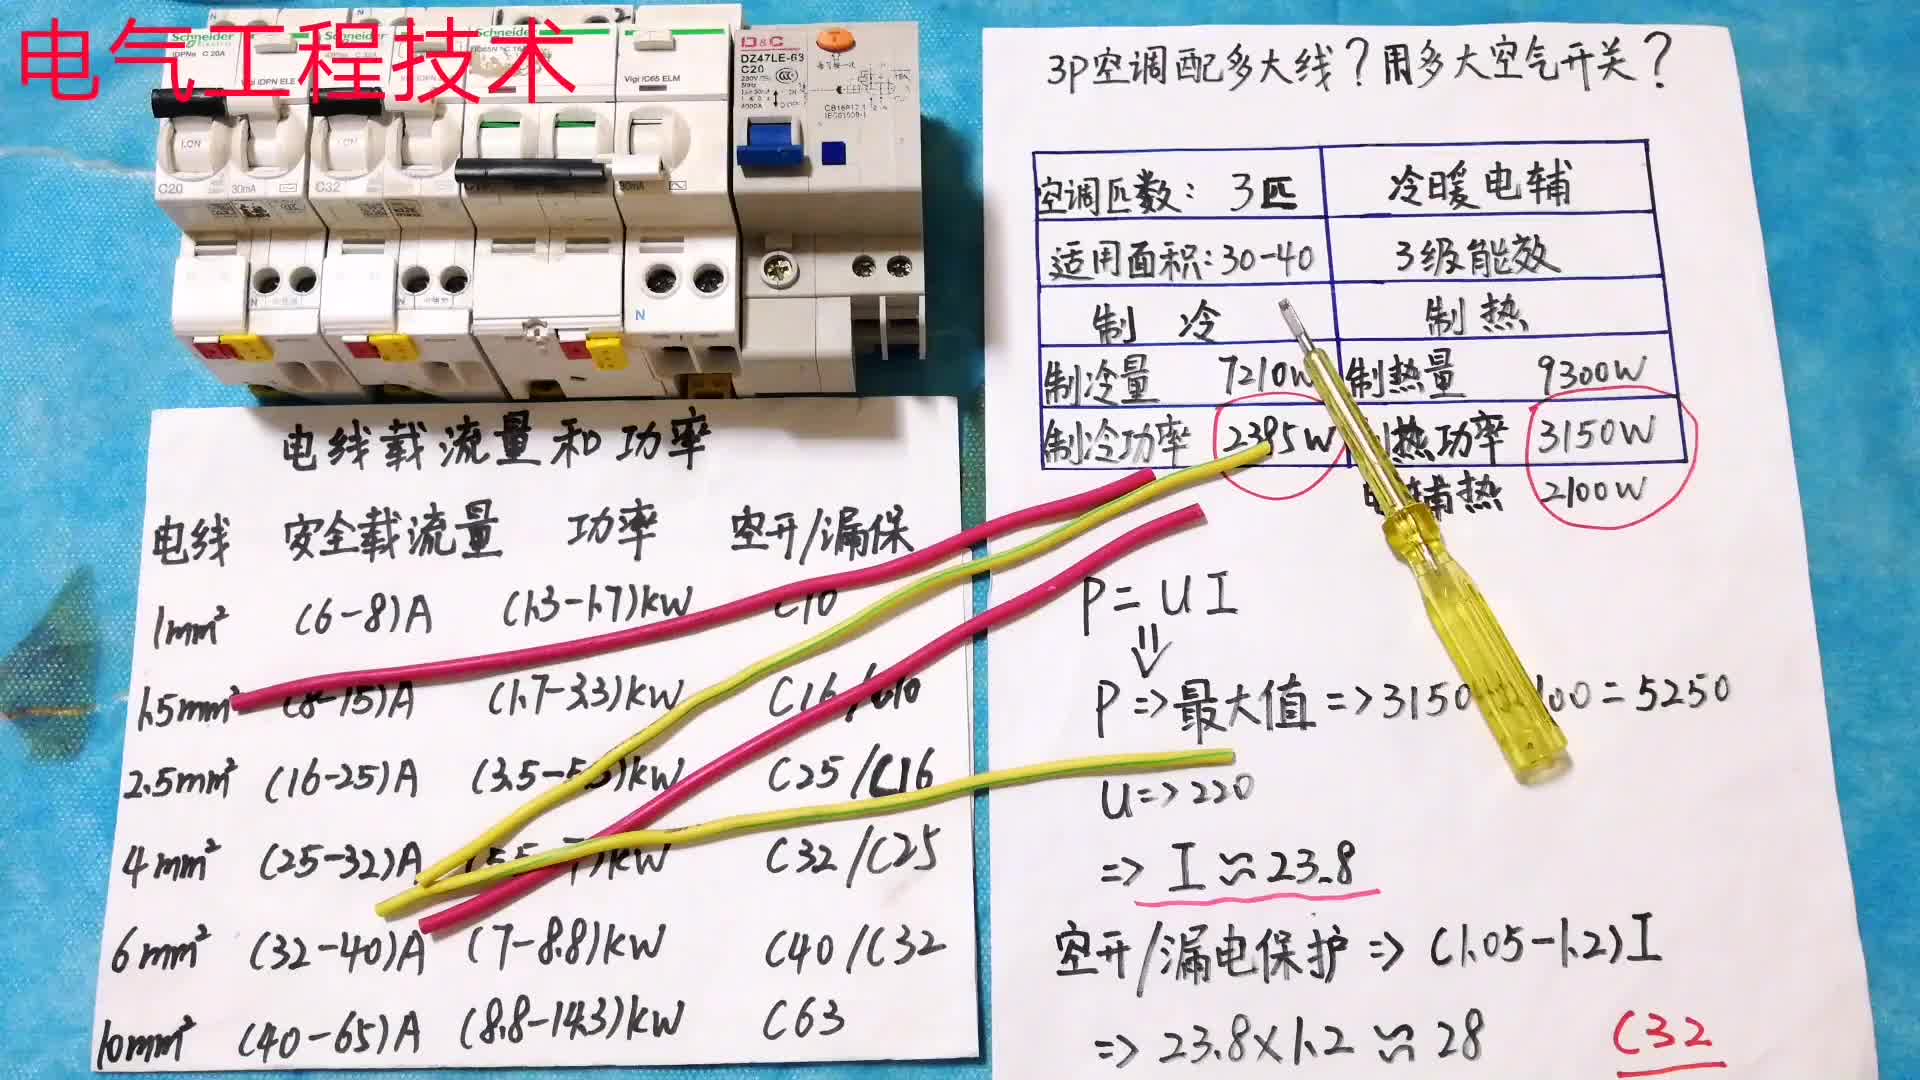 电气工程技术
Schneider
Electric
iDPNa C 20A
Vigi iDPN ELE
Schneider
Schneider
Vigi iC65 ELM
D&C
DZ47LE-63
C20
C20
30mA
C32
30mA
N
3P空调配多大线？用多大空气开关？
空调匹数：3匹 冷暖电辅
适用面积：30-40 3级能效
制冷 制热
制冷量 7210W 制热量 9300W
制冷功率 2385W 制热功率 3150W
辅热 2100W
P=UI
⇓
P=>最大值=>3150 100=5250
U=>220
=> I≈23.8
空开/漏电保护=>(1.05-1.2)I
=>23.8×1.2≈28 C32
电线载流量和功率
电线 安全载流量 功率 空开/漏保
1mm² (6-8)A (1.3-1.7)KW C10
1.5mm² (8-15)A (1.7-3.3)KW C16/C10
2.5mm² (16-25)A (3.5-5.5)KW C25/C16
4mm² (25-32)A (5.5-7)KW C32/C25
6mm² (32-40)A (7-8.8)KW C40/C32
10mm² (40-65)A (8.8-14.3)KW C63